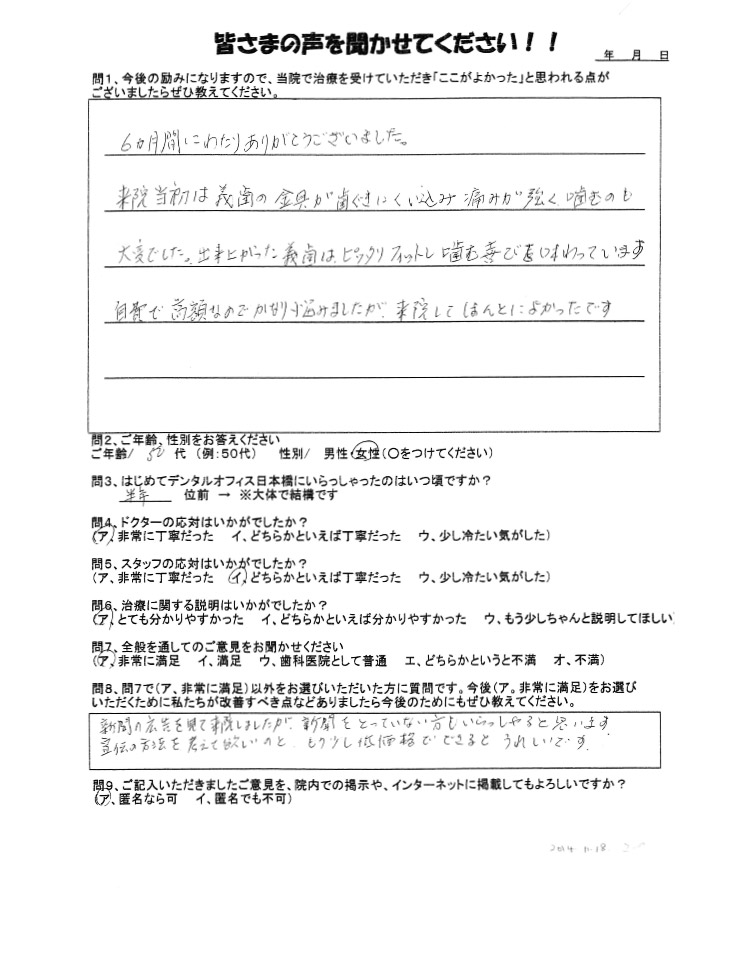 皆さまの声を聞かせてください！！
年　月　日
問1、今後の励みになりますので、当院で治療を受けていただき「ここがよかった」と思われる点が
ございましたらぜひ教えてください。
6ヵ月間にわたりありがとうございました。
来院当初は義歯の金具が歯ぐきにくい込み痛みが強く噛むのも
大変でした。出来上がった義歯は、ピッタリフィットし噛む喜びを味わっています
自費で高額なのでかなり悩みましたが、来院してほんとによかったです
問2、ご年齢、性別をお答えください
ご年齢/ 50 代 （例：50代）　性別/　男性・女性（○をつけてください）
問3、はじめてデンタルオフィス日本橋にいらっしゃったのはいつ頃ですか？
半年 位前 → ※大体で結構です
問4、ドクターの応対はいかがでしたか？
（ア、非常に丁寧だった　イ、どちらかといえば丁寧だった　ウ、少し冷たい気がした）
問5、スタッフの応対はいかがでしたか？
（ア、非常に丁寧だった　イ、どちらかといえば丁寧だった　ウ、少し冷たい気がした）
問6、治療に関する説明はいかがでしたか？
（ア、とても分かりやすかった　イ、どちらかといえば分かりやすかった　ウ、もう少しちゃんと説明してほしい
問7、全般を通してのご意見をお聞かせください
（ア、非常に満足　イ、満足　ウ、歯科医院として普通　エ、どちらかというと不満　オ、不満）
問8、問7で（ア、非常に満足）以外をお選びいただいた方に質問です。今後（ア。非常に満足）をお選び
いただくために私たちが改善すべき点などありましたら今後のためにもぜひ教えてください。
新聞の広告を見て来院しましたが、新聞をとっていない方もいらっしゃると思います
宣伝の方法を考えて欲しいのと、もう少し低価格でできるとうれしいです。
問9、ご記入いただきましたご意見を、院内での掲示や、インターネットに掲載してもよろしいですか？
（ア、匿名なら可　イ、匿名でも不可）
2014 11.18